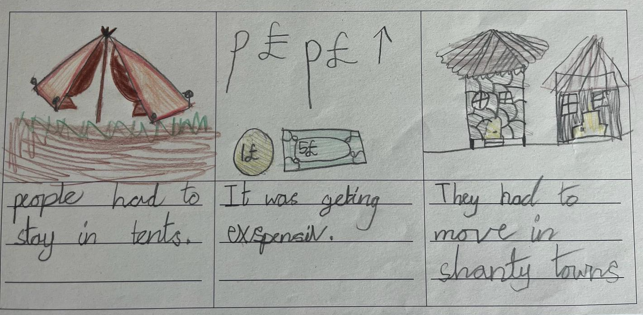 p £ p £ ↑
1£
5£
people had to
stay in tents.
It was geting
expensiv.
They had to
move in
shanty towns